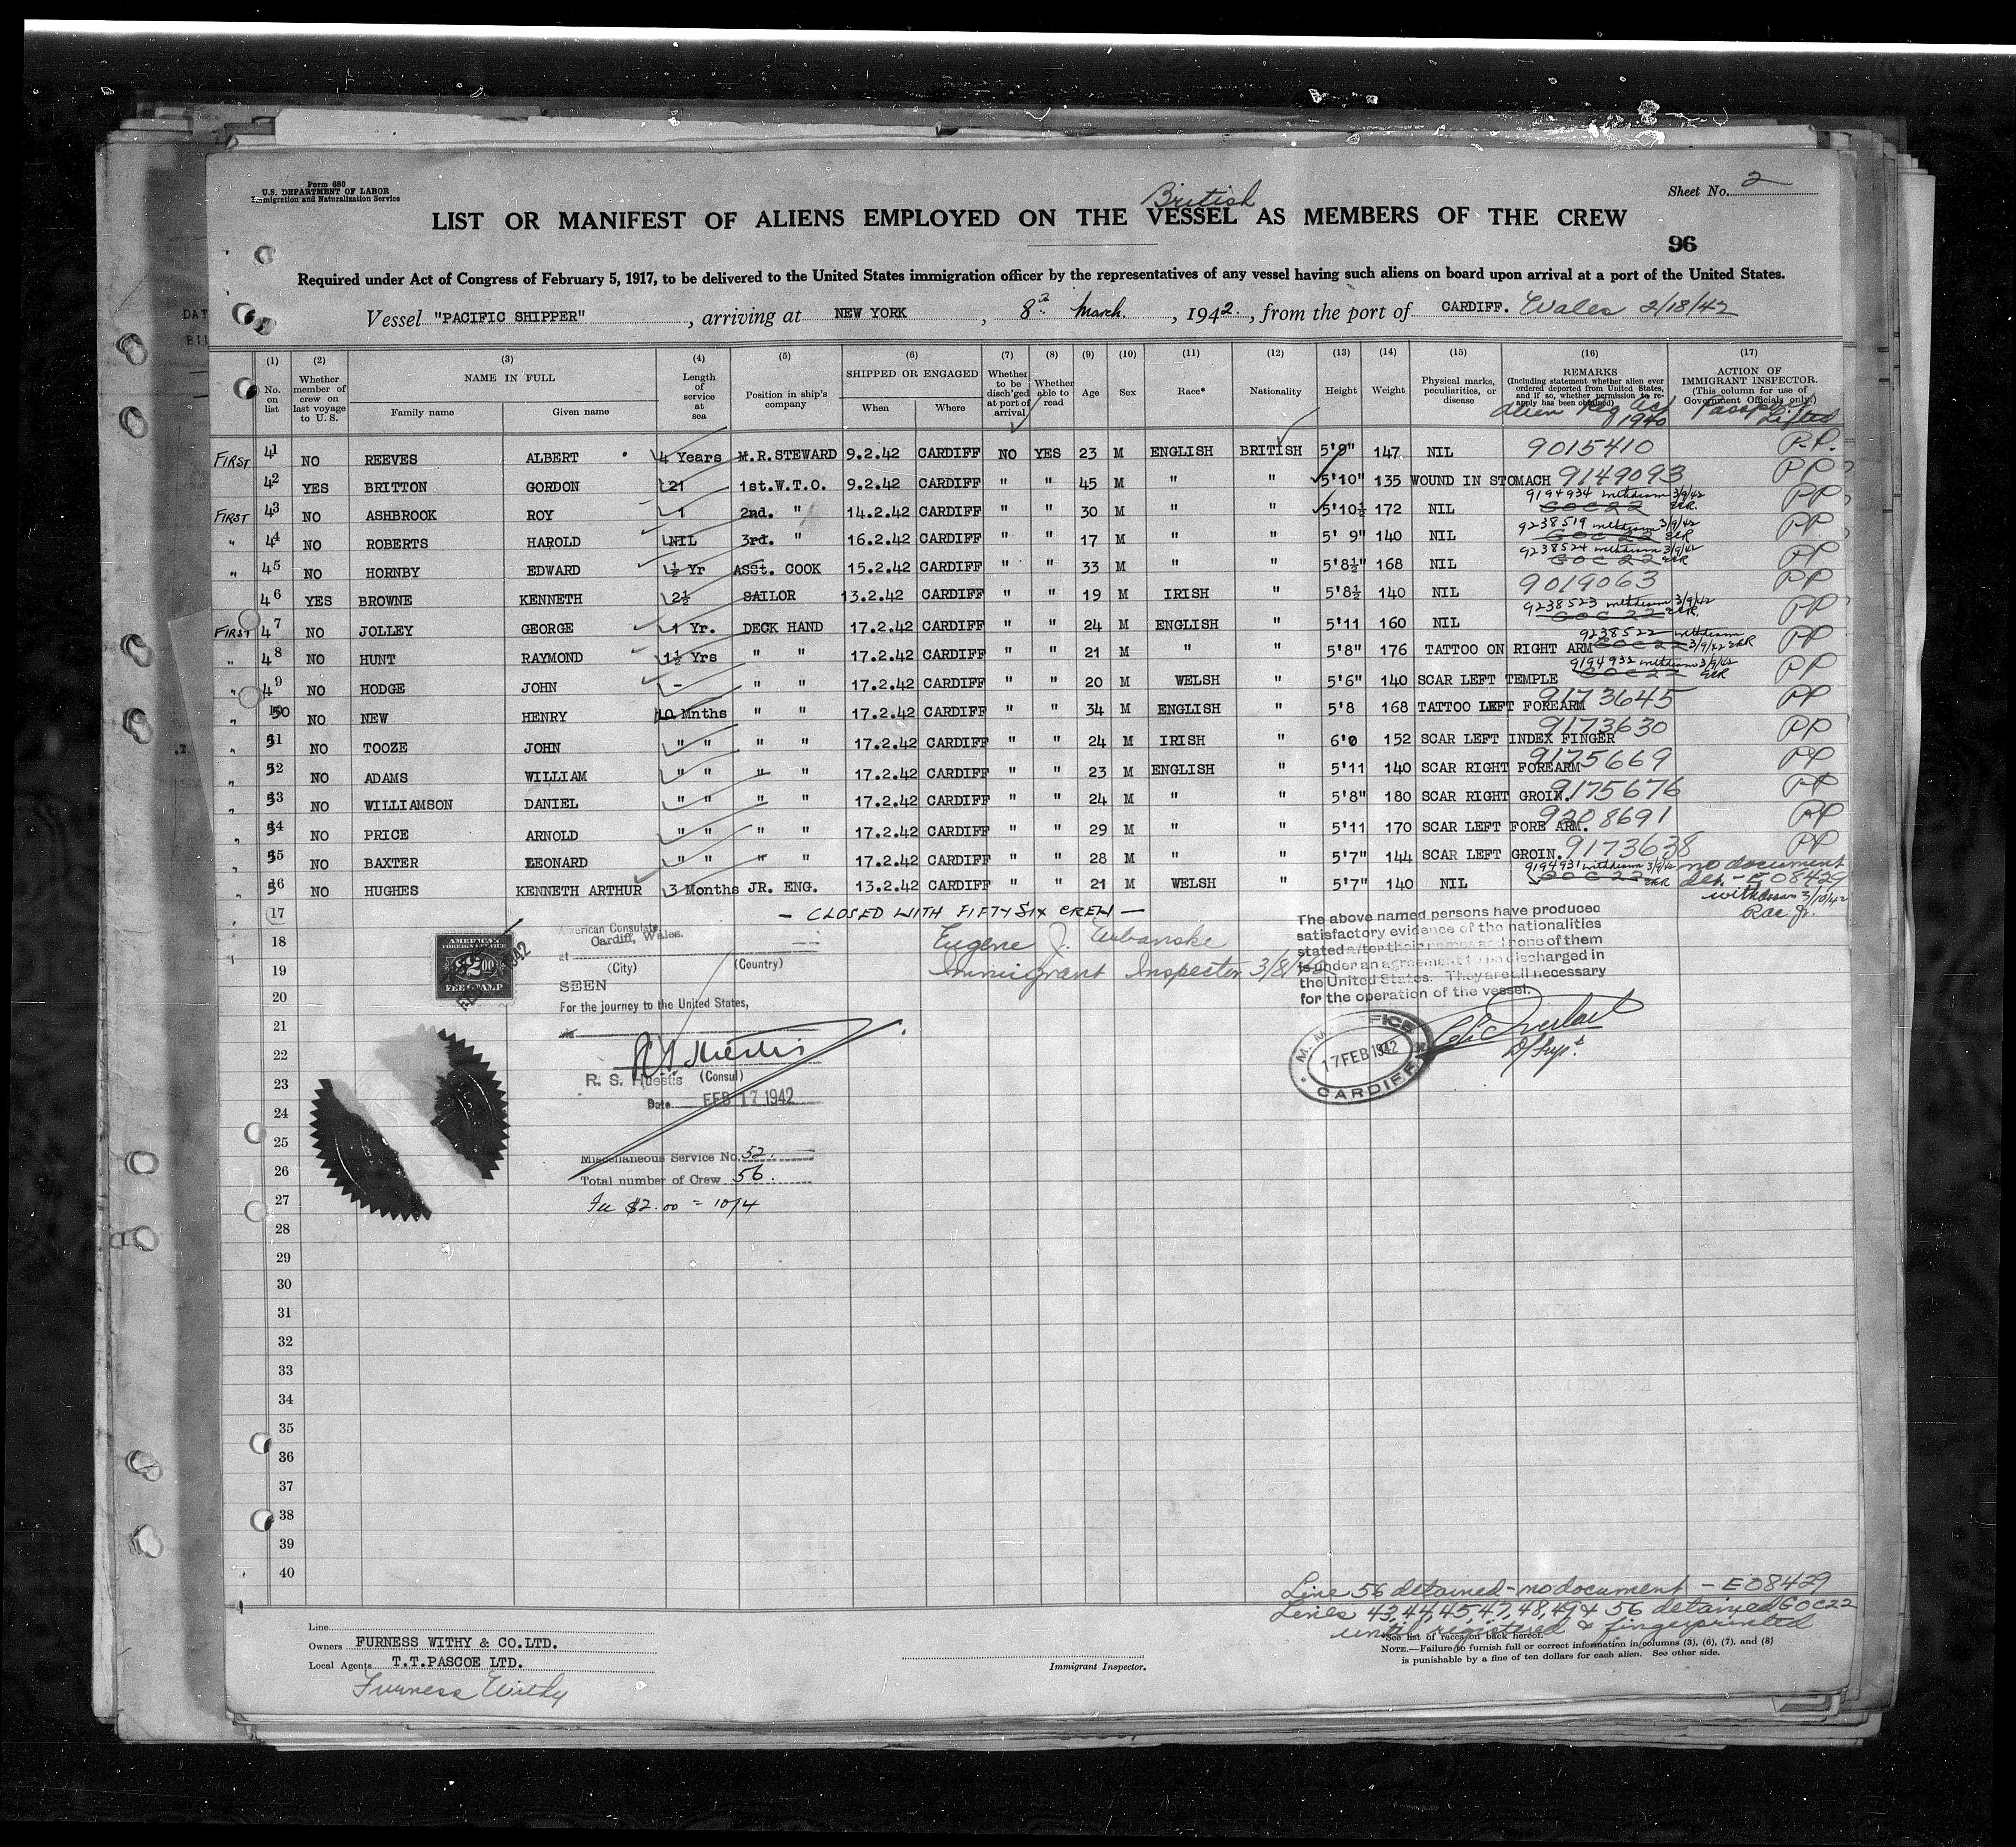 Form 680
U.S. DEPARTMENT OF LABOR
Immigration and Naturalization Service
Sheet No. 2
British
LIST OR MANIFEST OF ALIENS EMPLOYED ON THE VESSEL AS MEMBERS OF THE CREW
96
Required under Act of Congress of February 5, 1917, to be delivered to the United States immigration officer by the representatives of any vessel having such aliens on board upon arrival at a port of the United States.
Vessel "PACIFIC SHIPPER", arriving at NEW YORK, 8 March, 1942, from the port of CARDIFF. Wales 2/18/42
(1) (2) (3) (4) (5) (6) (7) (8) (9) (10) (11) (12) (13) (14) (15) (16) (17)
No. on list
Whether member of crew on last voyage to U. S.
NAME IN FULL
Family name
Given name
Length of service at sea
Position in ship's company
SHIPPED OR ENGAGED
When
Where
Whether to be disch'ged at port of arrival
Whether able to read
Age
Sex
Race*
Nationality
Height
Weight
Physical marks, peculiarities, or disease
REMARKS (Including statement whether alien ever ordered deported from United States, and if so, whether permission to reapply has been obtained)
Alien Reg Act 1940
ACTION OF IMMIGRANT INSPECTOR. (This column for use of Government Officials only.)
Passport Lifted
FIRST 41 NO REEVES ALBERT 4 Years M.R.STEWARD 9.2.42 CARDIFF NO YES 23 M ENGLISH BRITISH 5'9" 147 NIL 9015410 P.P.
42 YES BRITTON GORDON 21 1st.W.T.O. 9.2.42 CARDIFF " " 45 M " " 5'10" 135 WOUND IN STOMACH 9149093 PP
FIRST 43 NO ASHBROOK ROY 1 2nd. " 14.2.42 CARDIFF " " 30 M " " 5'10½ 172 NIL 9194934 withdrawn 3/9/42 GOC22 PP
" 44 NO ROBERTS HAROLD NIL 3rd. " 16.2.42 CARDIFF " " 17 M " " 5' 9" 140 NIL 9238519 withdrawn 3/9/42 GOC22 PP
" 45 NO HORNBY EDWARD 1½ Yr ASSt. COOK 15.2.42 CARDIFF " " 33 M " " 5'8½" 168 NIL 9238524 withdrawn 3/9/42 GOC22 PP
46 YES BROWNE KENNETH 2½ SAILOR 13.2.42 CARDIFF " " 19 M IRISH " 5'8½ 140 NIL 9019063 PP
FIRST 47 NO JOLLEY GEORGE 1 Yr. DECK HAND 17.2.42 CARDIFF " " 24 M ENGLISH " 5'11 160 NIL 9238523 withdrawn 3/9/42 GOC22 PP
" 48 NO HUNT RAYMOND 1½ Yrs " " 17.2.42 CARDIFF " " 21 M " " 5'8" 176 TATTOO ON RIGHT ARM 9238522 withdrawn GOC22 3/9/42 PP
" 49 NO HODGE JOHN - " " 17.2.42 CARDIFF " " 20 M WELSH " 5'6" 140 SCAR LEFT TEMPLE 9194932 withdrawn 3/9/42 GOC22 PP
" 50 NO NEW HENRY 10 Mnths " " 17.2.42 CARDIFF " " 34 M ENGLISH " 5'8 168 TATTOO LEFT FOREARM 9173645 PP
" 51 NO TOOZE JOHN " " " " 17.2.42 CARDIFF " " 24 M IRISH " 6'0 152 SCAR LEFT INDEX FINGER 9173630 PP
" 52 NO ADAMS WILLIAM " " " " 17.2.42 CARDIFF " " 23 M ENGLISH " 5'11 140 SCAR RIGHT FOREARM 9175669 PP
" 53 NO WILLIAMSON DANIEL " " " " 17.2.42 CARDIFF " " 24 M " " 5'8" 180 SCAR RIGHT GROIN. 9175676 PP
" 54 NO PRICE ARNOLD " " " " 17.2.42 CARDIFF " " 29 M " " 5'11 170 SCAR LEFT FORE ARM. 9208691 PP
" 55 NO BAXTER LEONARD " " " " 17.2.42 CARDIFF " " 28 M " " 5'7" 144 SCAR LEFT GROIN. 9173638 PP
" 56 NO HUGHES KENNETH ARTHUR 3 Months JR. ENG. 13.2.42 CARDIFF " " 21 M WELSH " 5'7" 140 NIL 9194931 withdrawn 3/9/42 GOC22 no document det - E08429
withdrawn 3/10/42
17 — CLOSED WITH FIFTY SIX CREW —
18
19
20
21
22
23
24
25
26
27
28
29
30
31
32
33
34
35
36
37
38
39
40
AMERICAN FOREIGN SERVICE
$2.00
FEE STAMP
American Consulate
Cardiff, Wales.
at
(City) (Country)
SEEN
For the journey to the United States,
R. S. Huestis (Consul)
Date FEB 17 1942
Miscellaneous Service No. 52.
Total number of Crew 56.
Fee $2.00 = 10/4
Eugene J. Urbanske
Immigrant Inspector 3/8/42
The above named persons have produced
satisfactory evidence of the nationalities
stated after their names and none of them
is under an agreement to be discharged in
the United States. They are all necessary
for the operation of the vessel.
D/Supt.
M. M. OFFICE
17 FEB 1942
CARDIFF
Line 56 detained - no document - E08429
Lines 43, 44, 45, 47, 48, 49 & 56 detained GOC22
until registered & fingerprinted
Line
Owners FURNESS WITHY & CO.LTD.
Local Agents T.T.PASCOE LTD.
Furness Withy
Immigrant Inspector.
*See list of races on back hereof.
NOTE.—Failure to furnish full or correct information in columns (3), (6), (7), and (8)
is punishable by a fine of ten dollars for each alien. See other side.